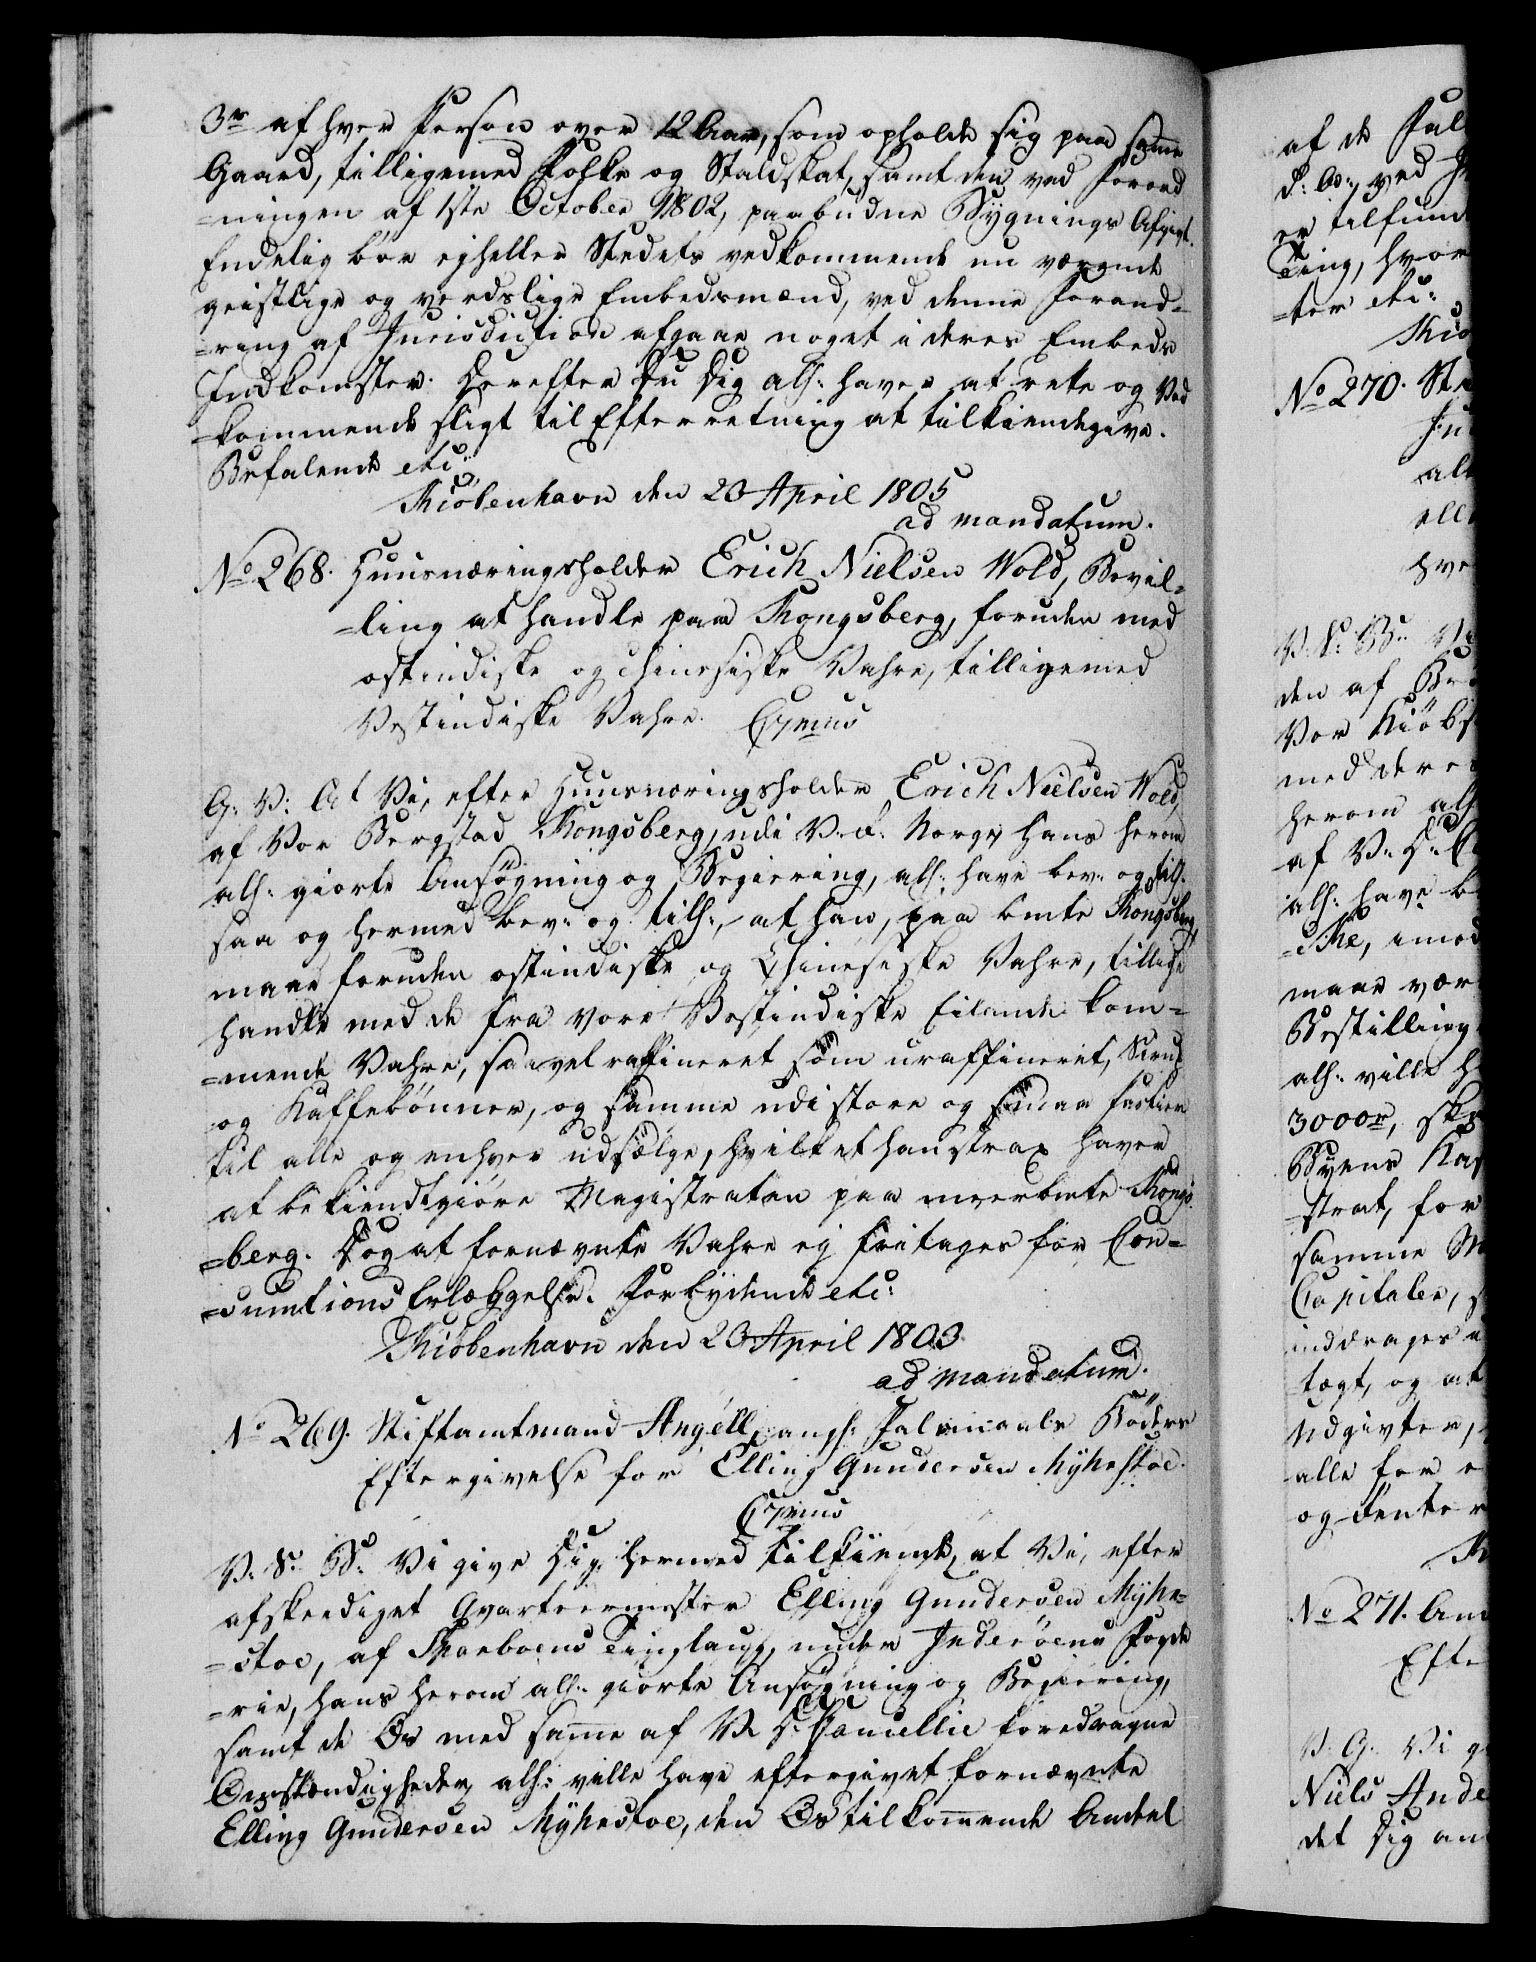 3rd af hver Person over 12 Aar, som opholde sig paa samme
Gaard, tilligemed Folke og Staldskat, samt den ved Forord
=ningen af 1ste October 1802, paabudne Bygnings Afgivt.
Endelig bør ejheller Stedets vedkommende nu værende
geistlige og verdslige Embedsmænd, ved denne Forand=
=ring af Jurisdiction afgaae noget i deres Embeds
Indkomster. Herefter Du Dig alh: haver at rette og Ved
=kommende sligt til Efterretning at tilkiendegive.
Befalende etc:
Kiøbenhavn den 20 April 1805
ad mandatum.
No 268. Huusnæringsholder Erich Nielsen Wold, Bevil=
=ling at handle paa Kongsberg, foruden med
ostindiske og chinesiske Vahre, tilligemed
Vestindiske Vahre. Gratis
G: V: At Vi, efter Huusnæringsholder Erich Nielsen Wold,
af Vor Bergstad Kongsberg, udi V. R: Norge hans herom
alh: giorte Ansøgning og Begiering, alh: have bev: og tilh:
saa og hermed bev: og tilh:, at han, paa bemte Kongsberg,
maae foruden ostindiske og Chinesiske Vahre, tillige
handle med de fra Vore Vestindiske Eilande kom=
=mende Vahre, saavel raffineret som uraffineret, Sirup
og Kaffebønner, og samme udi store og smaa Partier
til alle og enhver udsælge, hvilket han strax haver
at bekiendtgiøre Magistraten paa meerbemte Kongs
=berg. Dog at fornævnte Vahre ej fritages for Con=
=sumtions Erlæggelse. Forbydende etc:
Kiøbenhavn den 23 April 1803.
ad mandatum.
No 269. Stiftamtmand Angell, angh: Faldmaals Bøders
Eftergivelse for Elling Gundersen Myhrstoe.
Gratis
V: S: B: Vi give Dig hermed tilkiende, at Vi, efter
afskediget Qvarteermester Elling Gundersen Myhr=
=stoe, af Sparboens Tinglaug, under Inderøens Fogde
=rie, hans herom alh: giorte Ansøgning og Begiering,
samt de Os med samme af V. D: Cancellie foredragne
Omstændigheder, alh: ville have eftergivet fornævnte
Elling Gundersen Myhrstoe, den Os tilkommende Andeel
af de Fal
ved
er tilfund
Ting, hvor
=ter etc:
Kiø
No 270. St
alh
hve
V: S: B: Vi
den af
Vor Kiøbs
med dere
herom alh
af V. D: C
alh: have b
imod
maae vær
Bestilling
alh: ville h
3000rd,
Byens Kas
=strat, for
samme M
Capitaler,
inddrages
=tegt, og at
Udgivter,
alle for
og Rente
No 271. An
Efte
V: G: Vi g
Niels Ande
det Dig an